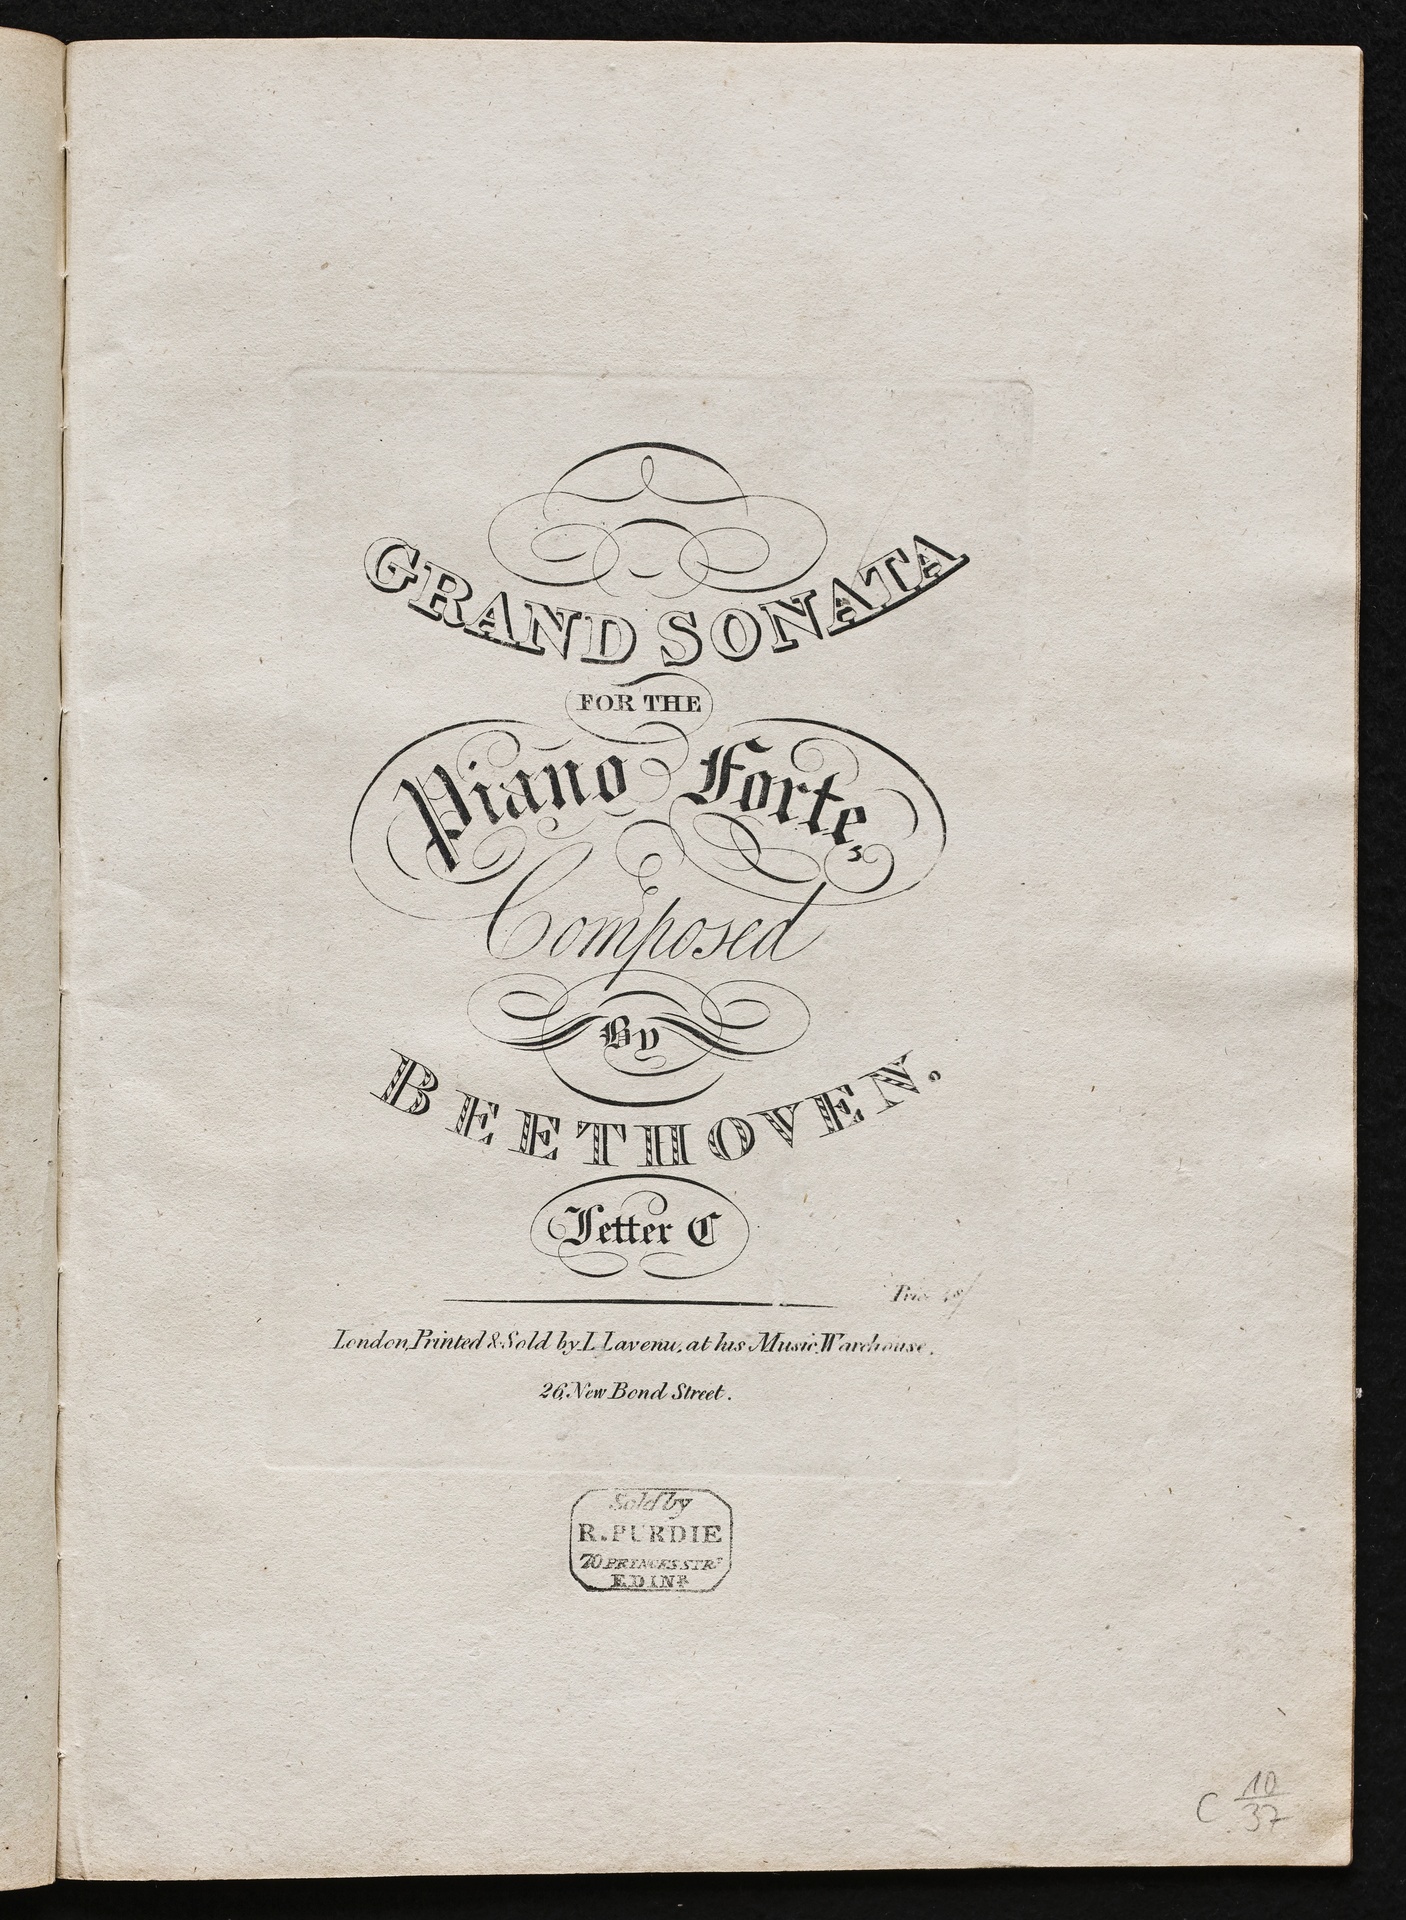 GRAND SONATA
FOR THE
Piano Forte,
Composed
By
BEETHOVEN.
Letter C
Price
London, Printed & Sold by L. Lavenu, at his Music Warehouse.
26, New Bond Street.
Sold by
R. PURDIE
70 PRINCES STRT
EDINR
C 10/37